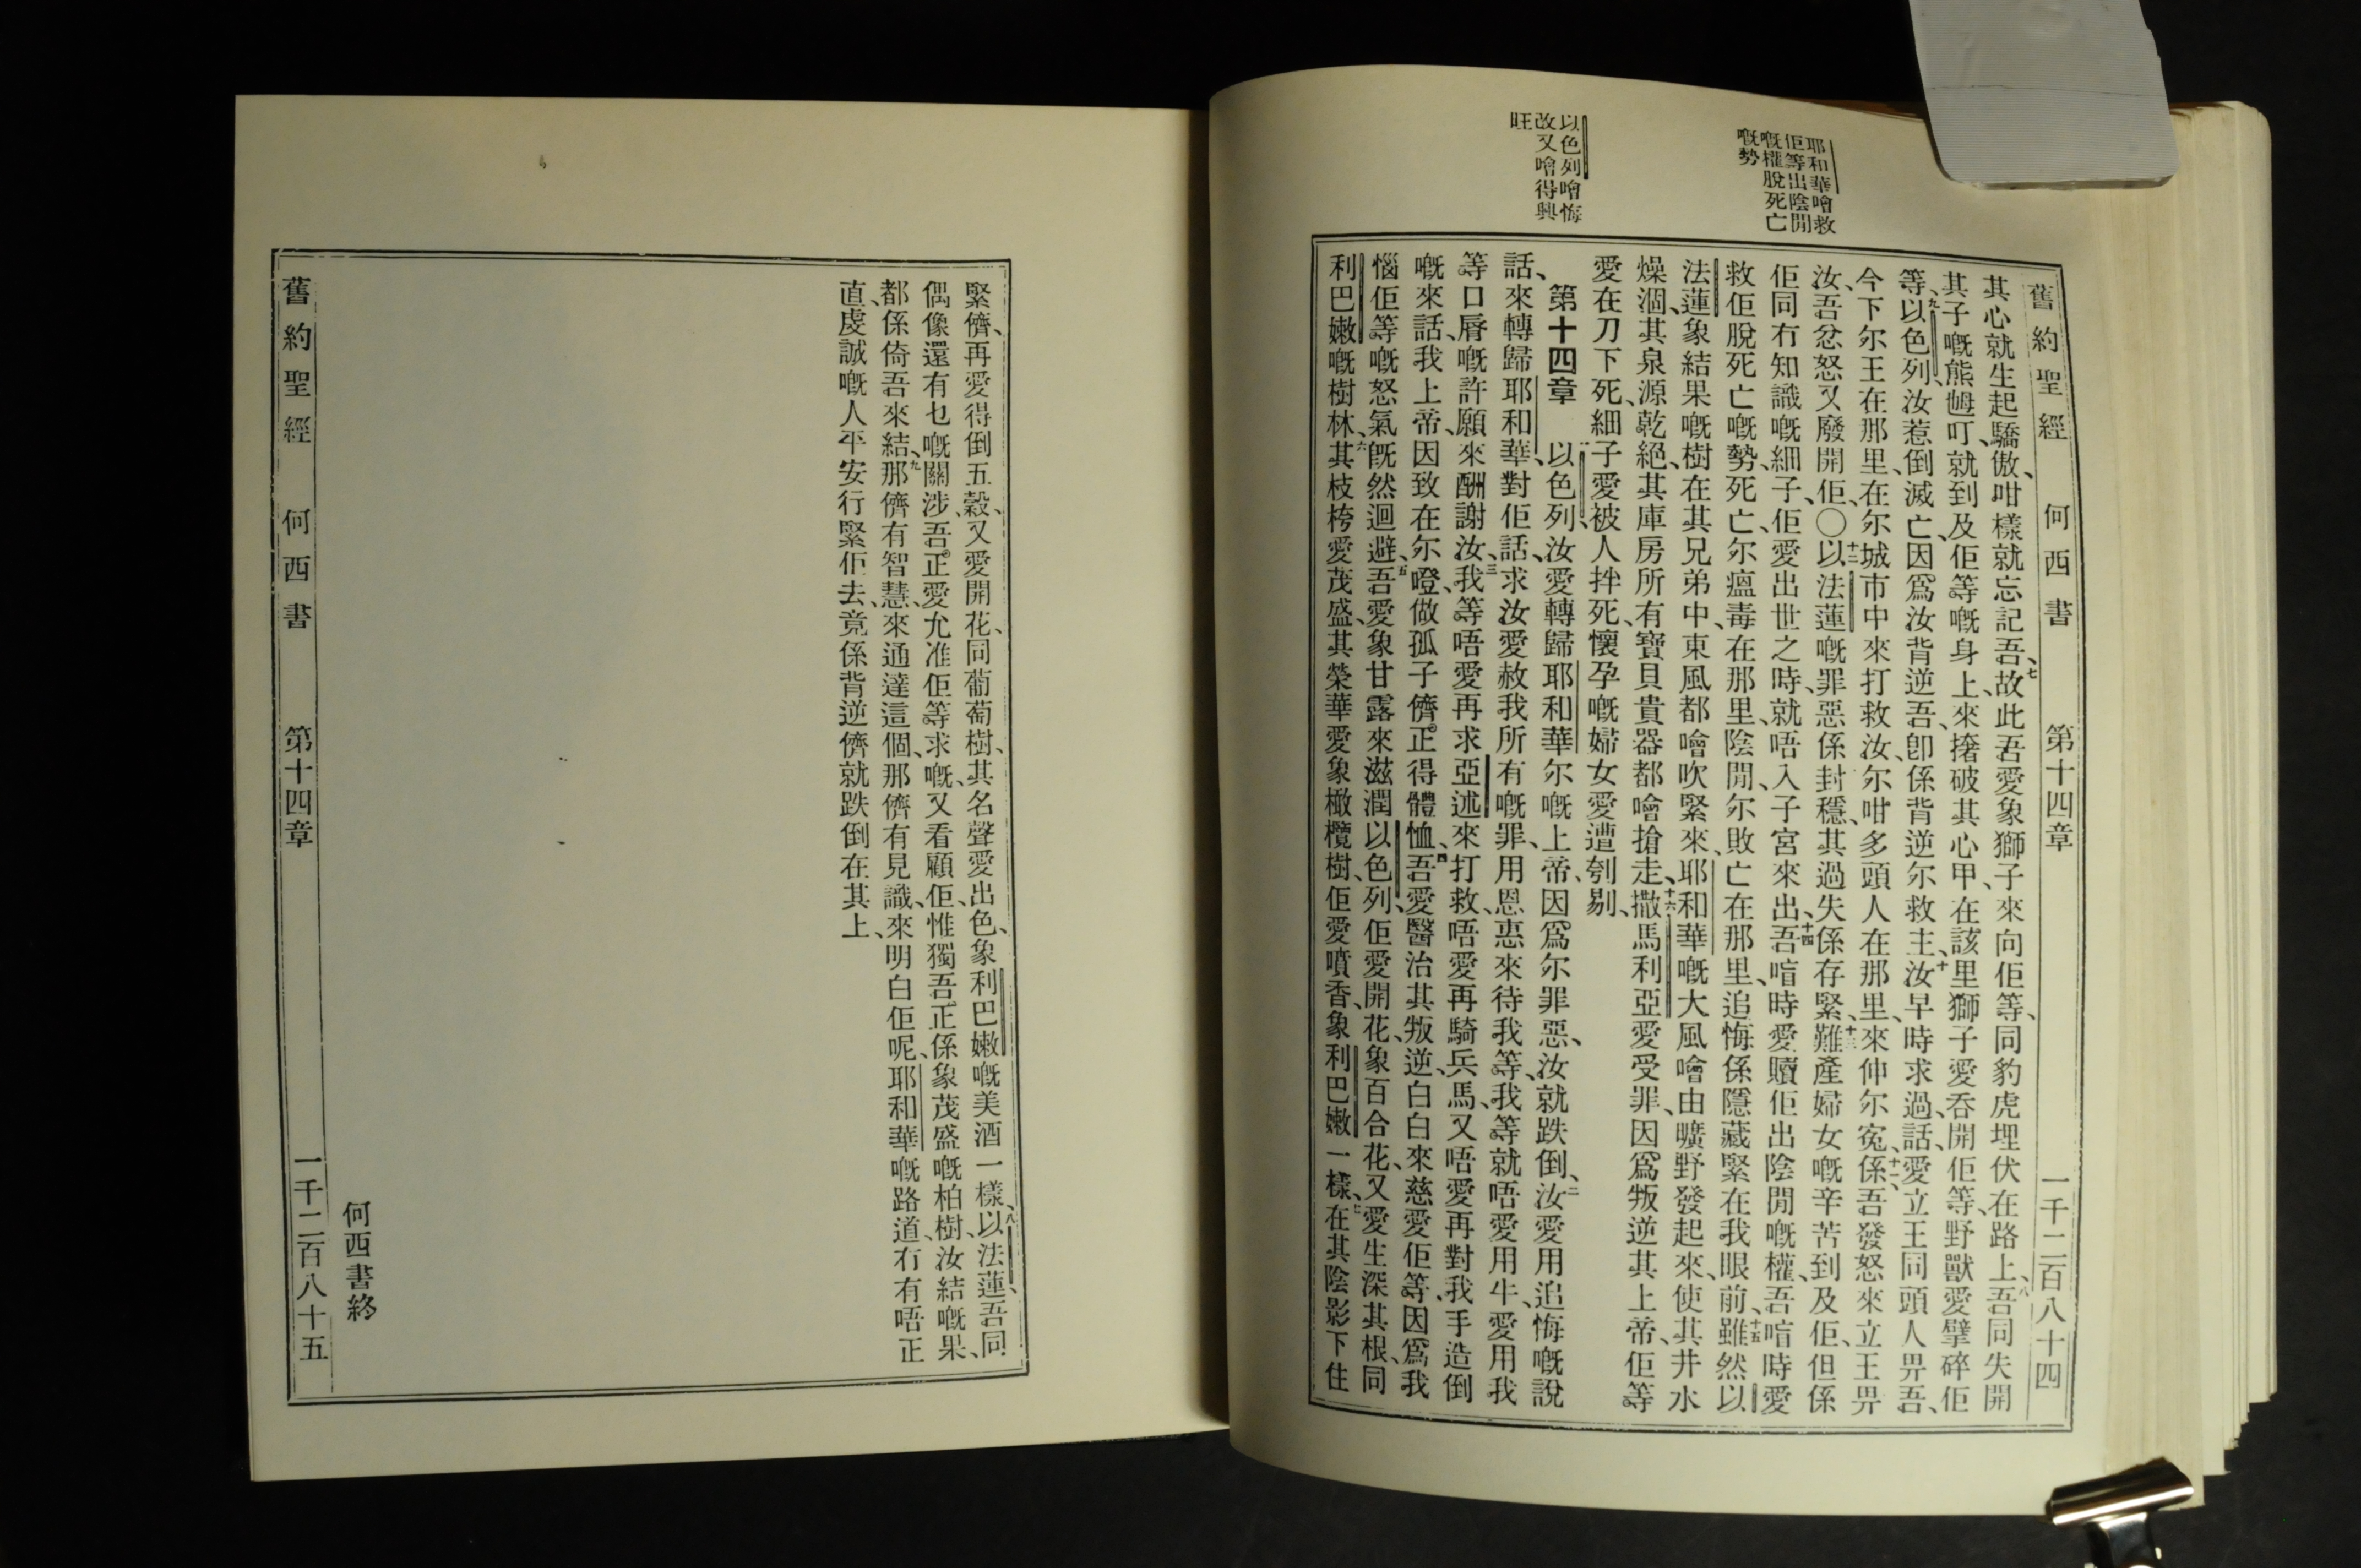 耶和華噲救
佢等出陰閒
嘅權脫死亡
嘅勢
以色列噲悔
改又噲得興
旺
舊約聖經 何西書 第十四章 一千二百八十四
其心就生起驕傲、咁樣就忘記吾、七故此吾愛象獅子來向佢等、同豹虎埋伏在路上、八吾同失開
其子嘅熊乸叮、就到及佢等嘅身上、來撦破其心甲、在該里獅子愛吞開佢等、野獸愛擘碎佢
等、九以色列、汝惹倒滅亡、因爲汝背逆吾、卽係背逆尔救主、十汝早時求過、話、愛立王同頭人畀吾、
今下尔王在那里、在尔城市中來打救汝、尔咁多頭人在那里、來伸尔寃、十一係吾發怒來立王畀
汝、吾忿怒又廢開佢、〇十二以法蓮嘅罪惡係封穩、其過失係存緊、十三難產婦女嘅辛苦到及佢、但係
佢同冇知識嘅細子、佢愛出世之時、就唔入子宮來出、十四吾喑時愛贖佢出陰閒嘅權、吾喑時愛
救佢脫死亡嘅勢、死亡、尔瘟毒在那里、陰閒、尔敗亡在那里、追悔係隱藏緊在我眼前、十五雖然以
法蓮象結果嘅樹在其兄弟中、東風都噲吹緊來、耶和華嘅大風噲由曠野發起來、使其井水
燥涸、其泉源乾絕、其庫房所有寶貝貴器都噲搶走、十六撒馬利亞愛受罪、因爲叛逆其上帝、佢等
愛在刀下死、細子愛被人拌死、懷孕嘅婦女愛遭刳剔、
第十四章 以色列、汝愛轉歸耶和華尔嘅上帝、因爲尔罪惡、汝就跌倒、二汝愛用追悔嘅說
話、來轉歸耶和華、對佢話、求汝愛赦我所有嘅罪、用恩惠來待我等、我等就唔愛用牛、愛用我
等口脣嘅許願、來酬謝汝、三我等唔愛再求亞述來打救、唔愛再騎兵馬、又唔愛再對我手造倒
嘅來話、我上帝、因致在尔、噔做孤子儕、正得體恤、四吾愛醫治其叛逆、白白來慈愛佢等、因爲我
惱佢等嘅怒氣旣然迴避、五吾愛象甘露來滋潤以色列、佢愛開花、象百合花、又愛生深其根、同
利巴嫩嘅樹林、六其枝椦愛茂盛、其榮華愛象橄欖樹、佢愛噴香、象利巴嫩一樣、七在其陰影下住
緊儕、再愛得倒五穀、又愛開花、同葡萄樹、其名聲愛出色、象利巴嫩嘅美酒一樣、八以法蓮、吾同
偶像還有乜嘅關涉、吾正愛允准佢等求嘅、又看顧佢、惟獨吾正係象茂盛嘅柏樹、汝結嘅果、
都係倚吾來結、九那儕有智慧、來通達這個、那儕有見識、來明白佢呢、耶和華嘅路道、冇有唔正
直、虔誠嘅人平安行緊佢去、竟係背逆儕就跌倒在其上、
何西書終
舊約聖經 何西書 第十四章 一千二百八十五